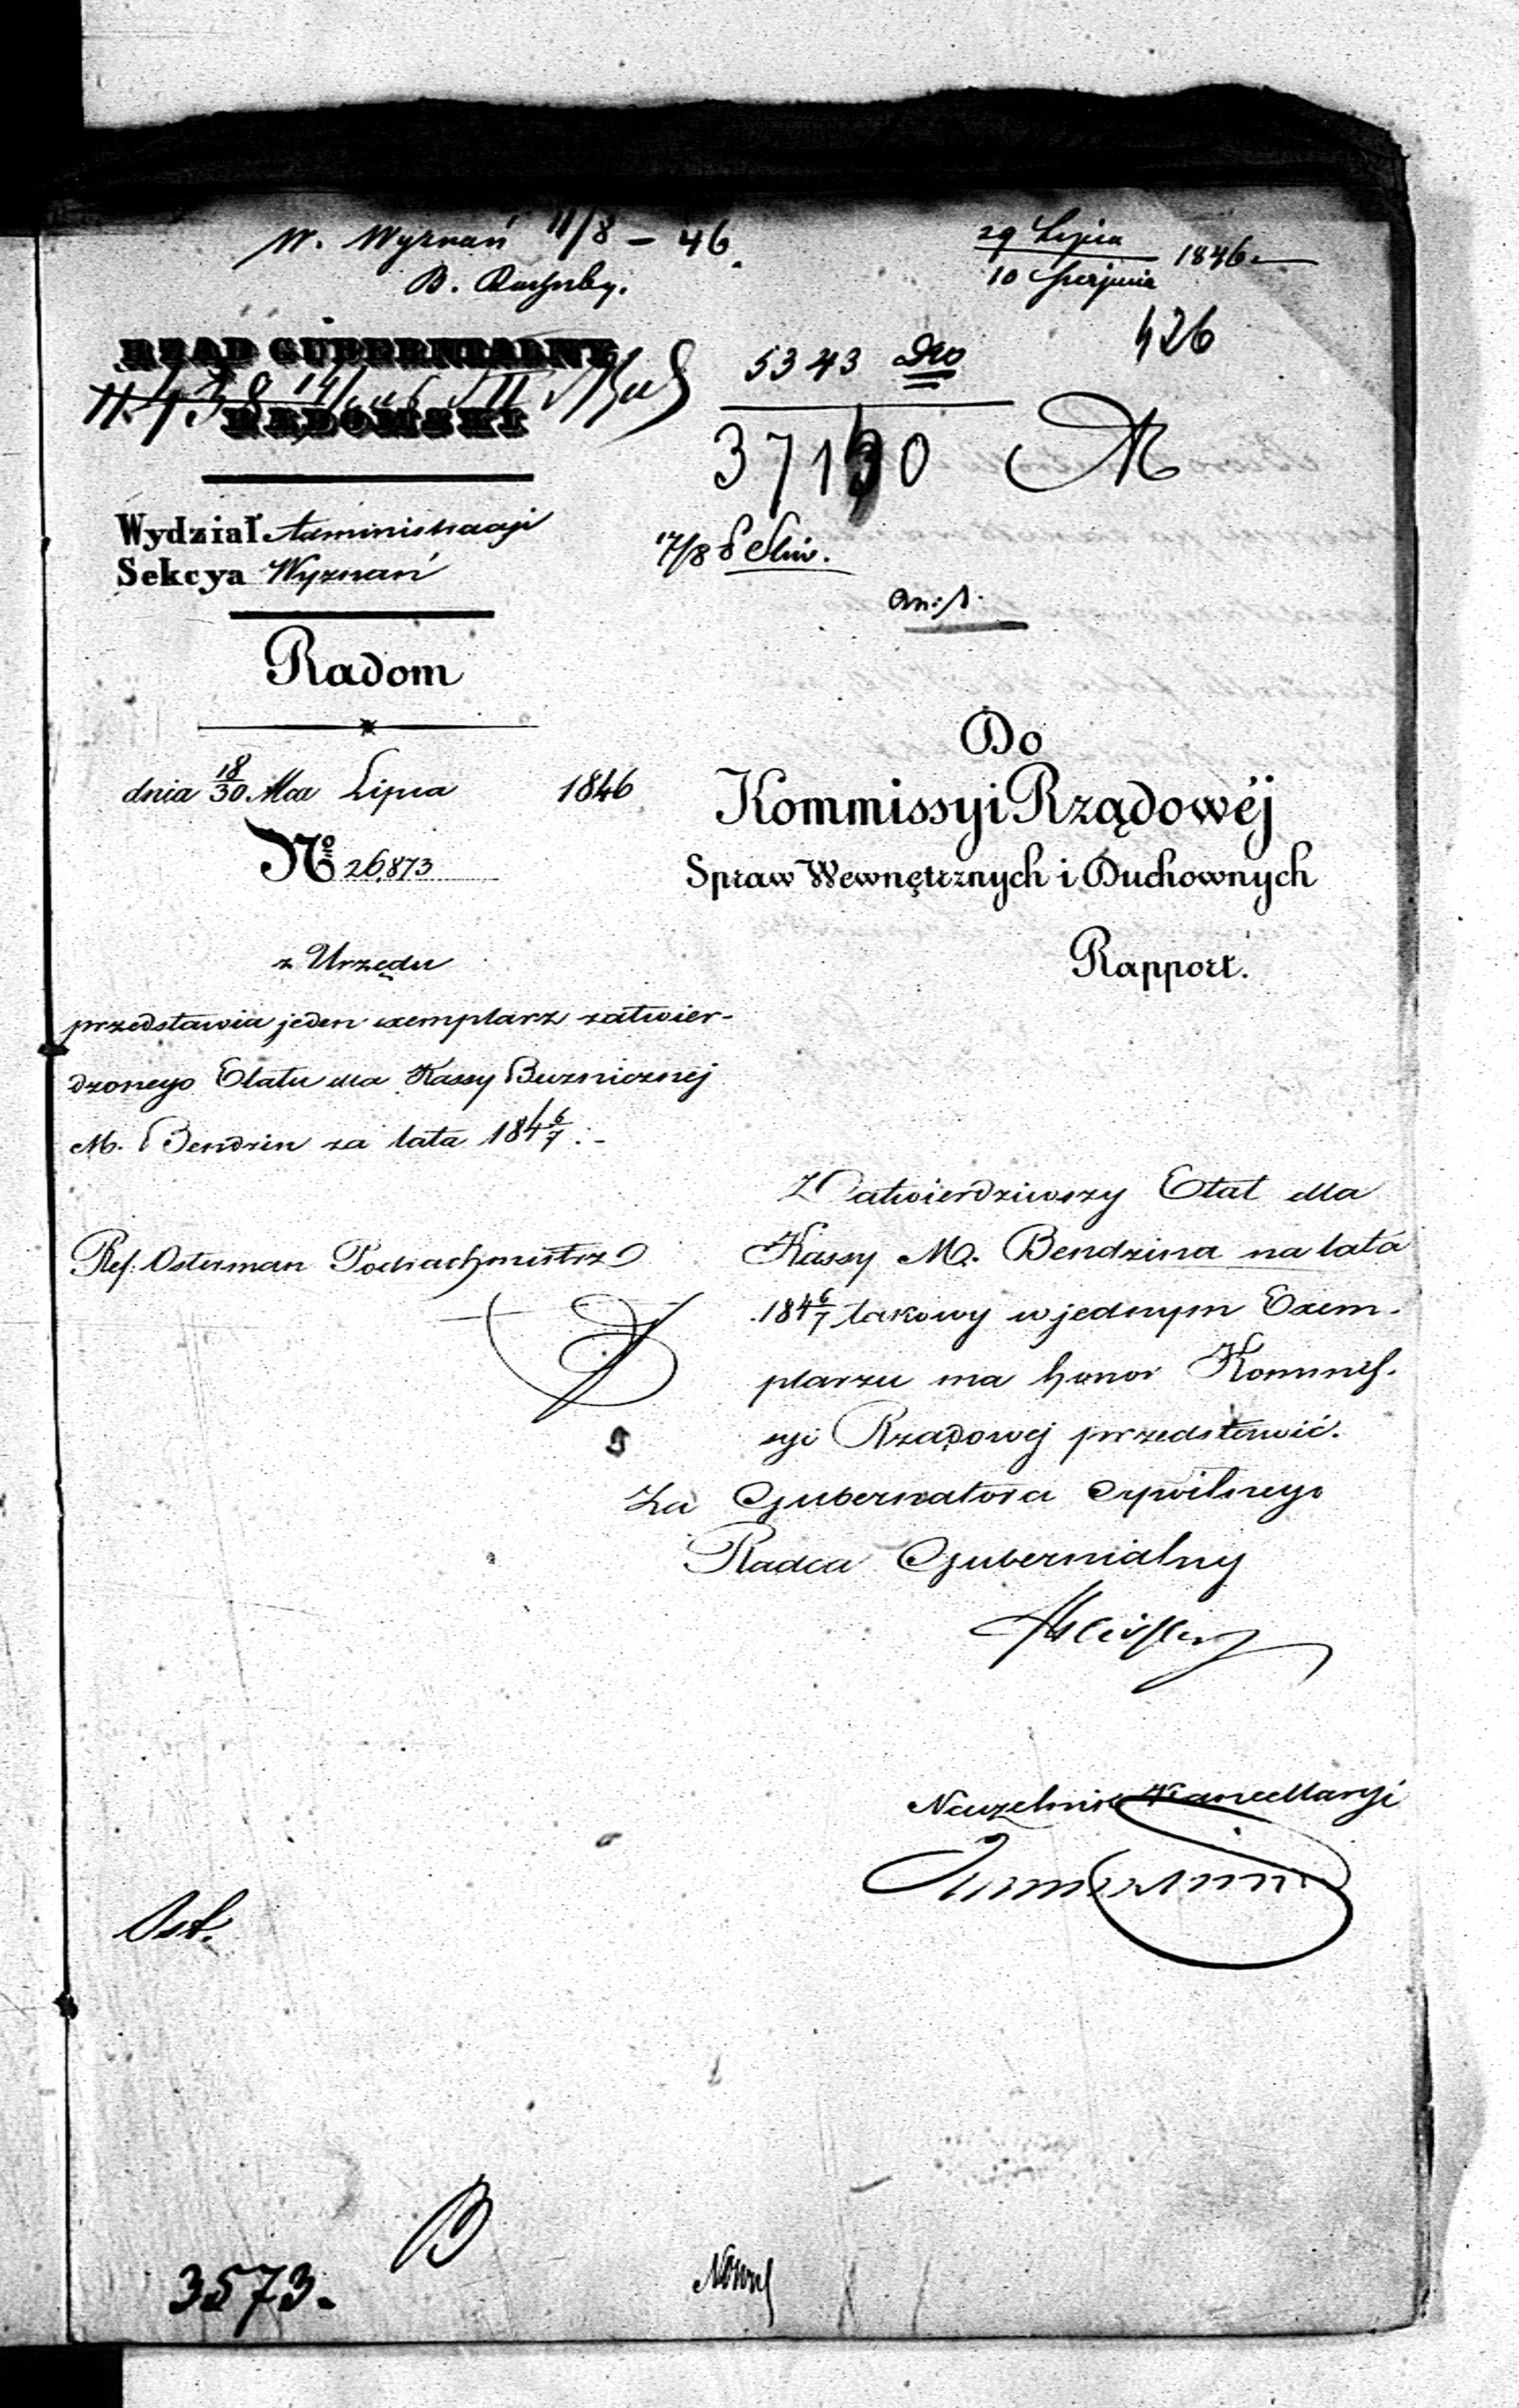 W. Wyznań 11/8 – 46.
29 Lipca
10 Sierpnia 1846
426
RZĄD GUBERNIALNY
RADOMSKI
5343
37130
Wydział Administracyi
Sekcya Wyznań
17/8
Radom
dnia 18/30 Lipca 1846
No 26,873
Do
Kommissyi Rządowéj
Spraw Wewnętrznych i Duchownych
Rapport.
z Urzędu
przedstawia jeden exemplarz zatwier-
dzonego Etatu dla Kassy Buznicznéj
M. Bendzin za lata 184 6/7.
Ref. Osterman Podrachmistrz
Zatwierdziwszy Etat dla
Kassy M. Bendzina na lata
184 6/7 takowy w jednym Exem-
plarzu ma honor Kommis-
syi Rządowej przedstawić.
Za Gubernatora Cywilnego
Radca Gubernialny
Naczelnik Kancellaryi
Ost.
B
3573.